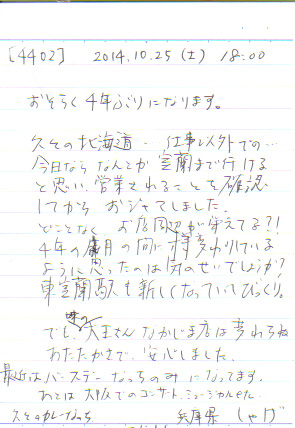 [4402] 2014.10.25(土) 18:00
おそらく4年ぶりになります。
久々の北海道… 仕事以外での…
今日ならなんとか室蘭まで行ける
と思い、営業されることを確認
してからおジャマしました。
どことなくお店周辺が変えてる?!
4年の歳月の間に様変わりしている
ように思ったのは気のせいでしょうか?
東室蘭駅も新しくなっていてびっくり。
でも、味の大王さんなかじま店は変わらぬ
あたたかさで、安心しました。
最近はバースデーなっちのみになってます。
あとは大阪でのコンサート、ミュージカルetc.
久々のカレーなっち 兵庫県 しゃげ